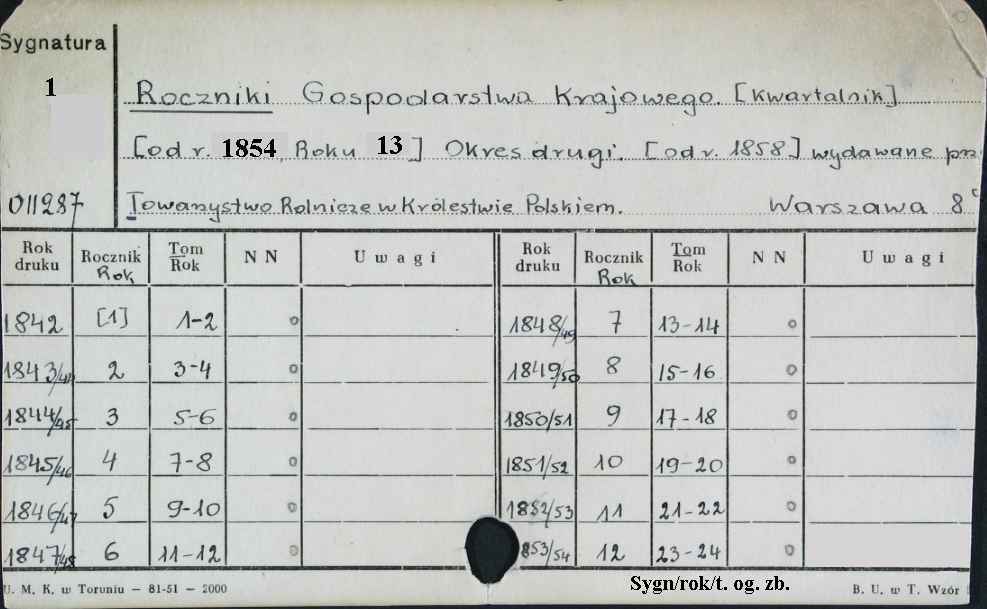 Sygnatura
1
Roczniki Gospodarstwa Krajowego. [Kwartalnik]
[od r. 1854, Roku 13] Okres drugi. [od r. 1858] wydawane prz
011287 Towarzystwo Rolnicze w Królestwie Polskiem. Warszawa 8°
Rok druku Rocznik Rok Tom Rok N N Uwagi Rok druku Rocznik Rok Tom Rok N N Uwagi
1842 [1] 1-2 o 1848/49 7 13-14 o
1843/44 2 3-4 o 1849/50 8 15-16 o
1844/45 3 5-6 o 1850/51 9 17-18 o
1845/46 4 7-8 o 1851/52 10 19-20 o
1846/47 5 9-10 o 1852/53 11 21-22 o
1847/48 6 11-12 o 853/54 12 23-24 o
U. M. K. w Toruniu — 81-51 — 2000 Sygn/rok/t. og. zb. B. U. w T. Wzór